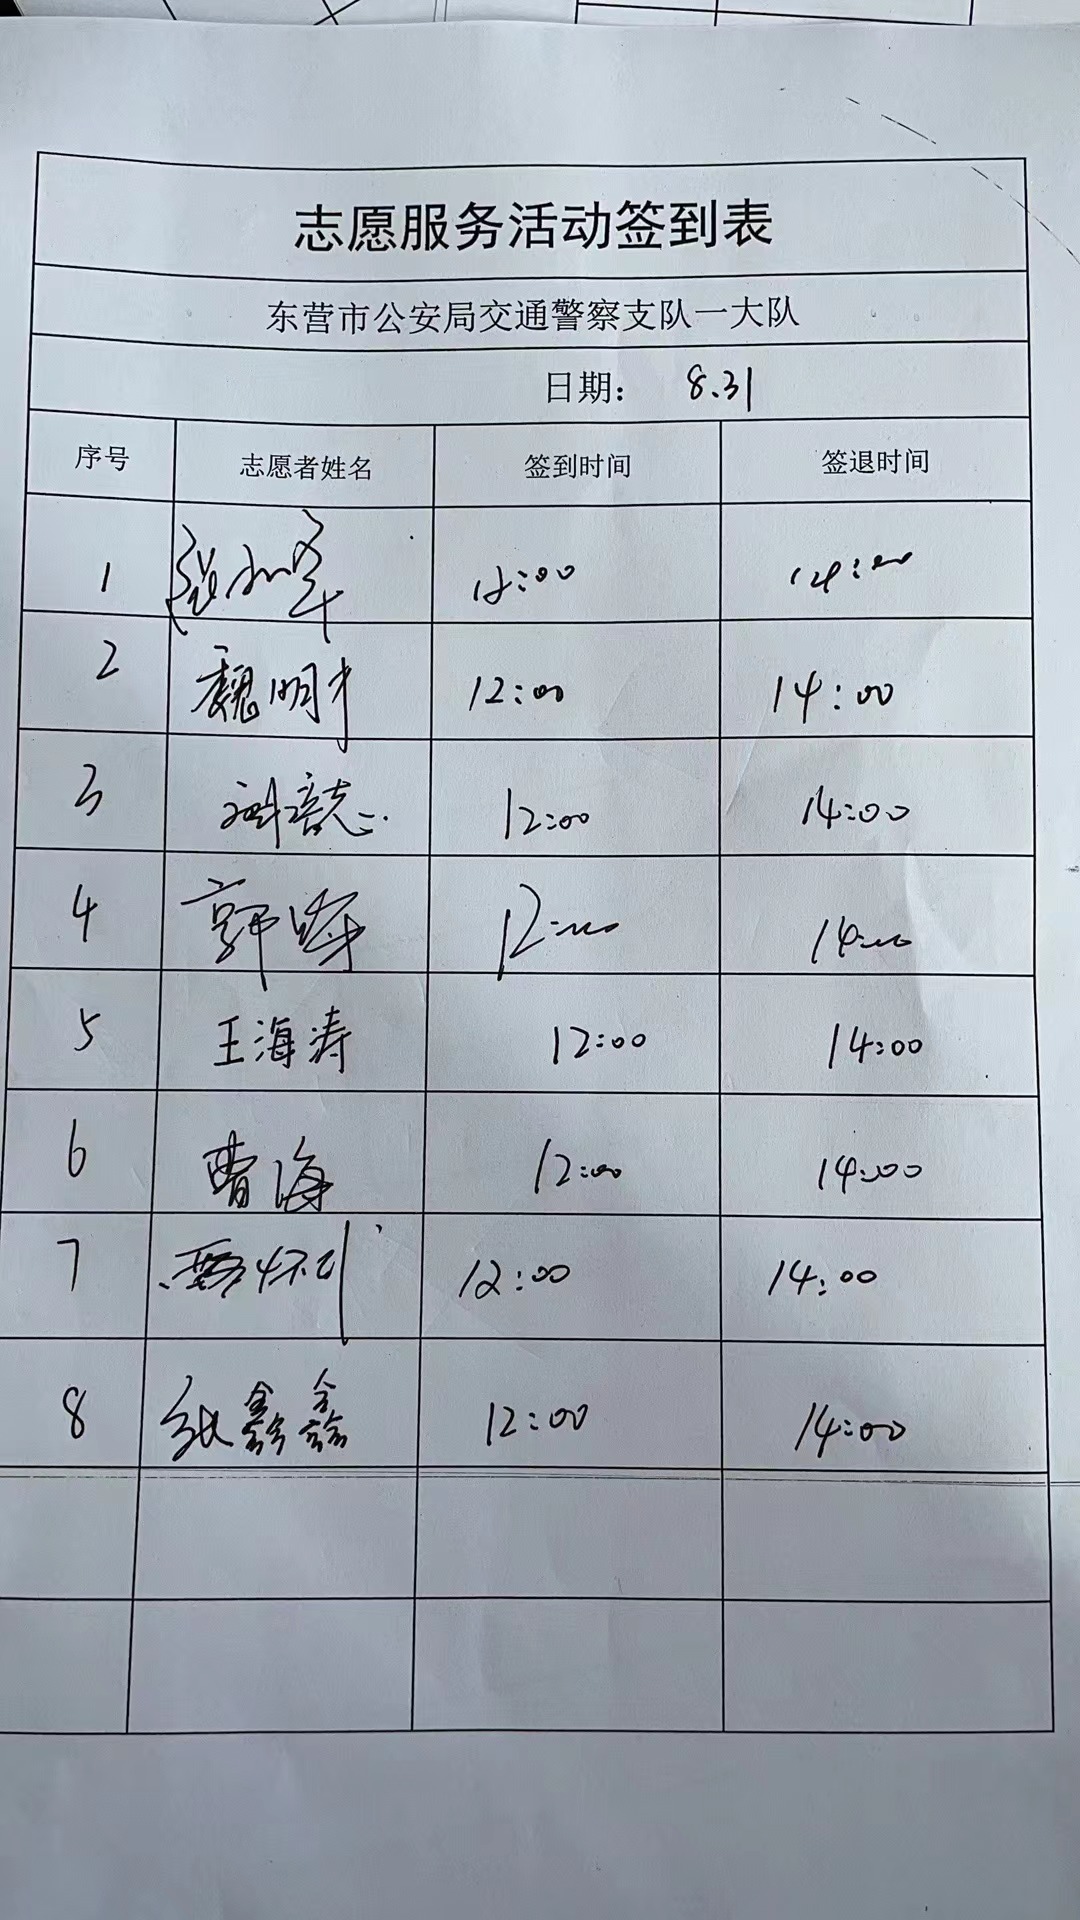 志愿服务活动签到表
东营市公安局交通警察支队一大队
日期： 8.31
序号 志愿者姓名 签到时间 签退时间
1 12:00 14:00
2 魏明才 12:00 14:00
3 12:00 14:00
4 郭峰 12:00 14:00
5 王海涛 12:00 14:00
6 曹海 12:00 14:00
7 12:00 14:00
8 张鑫鑫 12:00 14:00